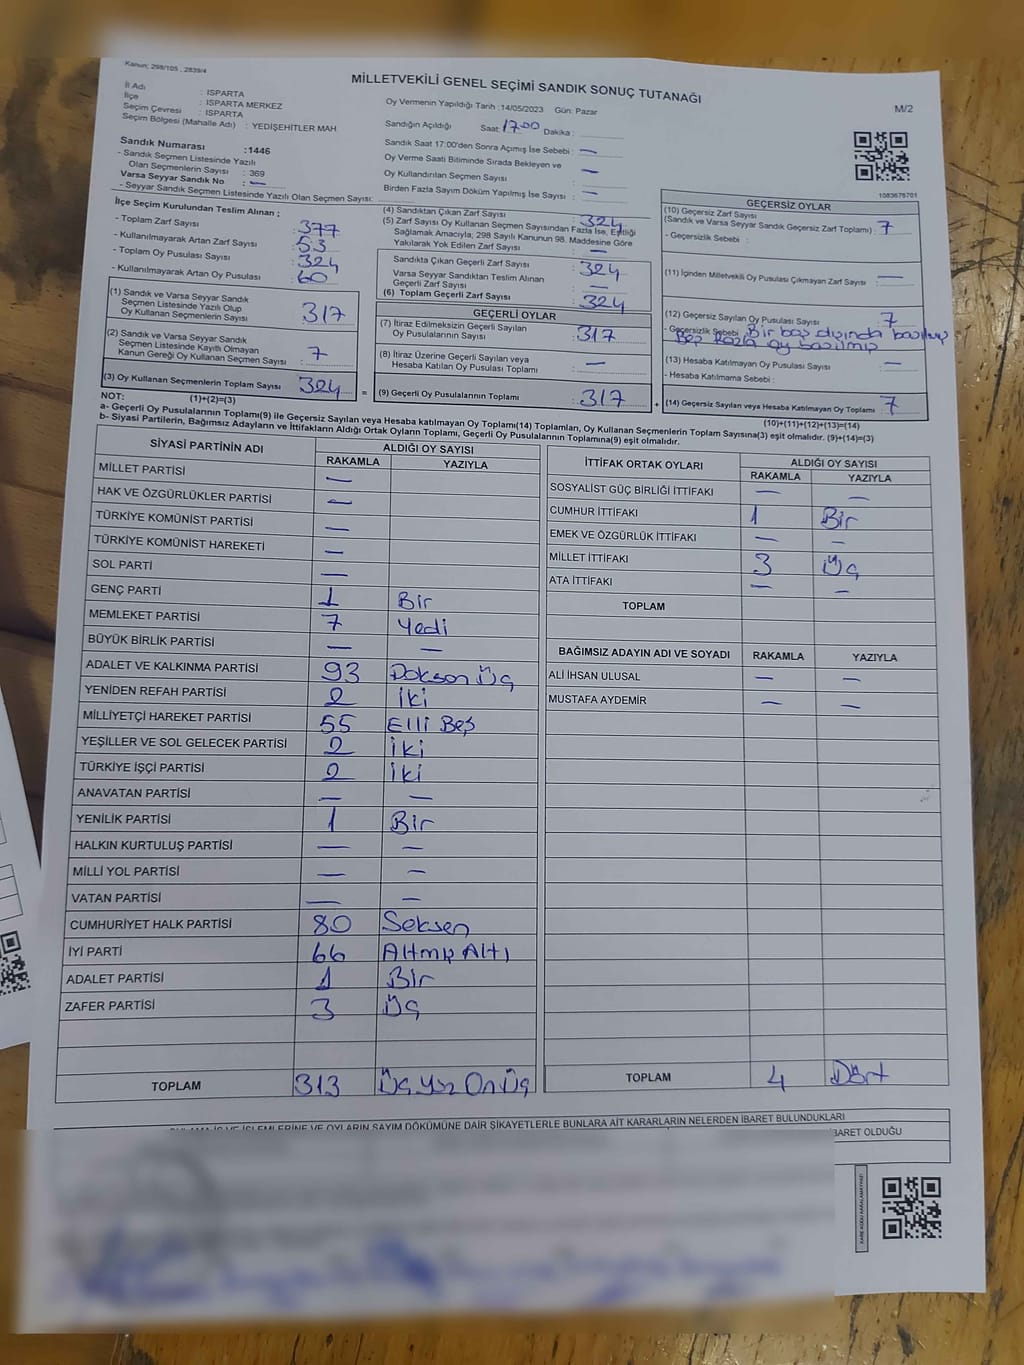 Kanun; 298/105 , 2839/4
MİLLETVEKİLİ GENEL SEÇİMİ SANDIK SONUÇ TUTANAĞI
M/2
İl Adı : ISPARTA
İlçe : ISPARTA MERKEZ
Seçim Çevresi : ISPARTA
Seçim Bölgesi (Mahalle Adı) : YEDİŞEHİTLER MAH
Sandık Numarası :1446
- Sandık Seçmen Listesinde Yazılı
Olan Seçmenlerin Sayısı : 369
Varsa Seyyar Sandık No : —
- Seyyar Sandık Seçmen Listesinde Yazılı Olan Seçmen Sayısı:
Oy Vermenin Yapıldığı Tarih :14/05/2023 Gün: Pazar
Sandığın Açıldığı Saat: 17.00 Dakika :
Sandık Saat 17:00'den Sonra Açımış İse Sebebi : —
Oy Verme Saati Bitiminde Sırada Bekleyen ve
Oy Kullandırılan Seçmen Sayısı : —
Birden Fazla Sayım Döküm Yapılmış İse Sayısı : —
1083676701
İlçe Seçim Kurulundan Teslim Alınan ;
- Toplam Zarf Sayısı : 377
- Kullanılmayarak Artan Zarf Sayısı : 53
- Toplam Oy Pusulası Sayısı : 324
- Kullanılmayarak Artan Oy Pusulası : 60
(1) Sandık ve Varsa Seyyar Sandık
Seçmen Listesinde Yazılı Olup
Oy Kullanan Seçmenlerin Sayısı : 317
(2) Sandık ve Varsa Seyyar Sandık
Seçmen Listesinde Kayıtlı Olmayan
Kanun Gereği Oy Kullanan Seçmen Sayısı : 7
(3) Oy Kullanan Seçmenlerin Toplam Sayısı : 324
(4) Sandıktan Çıkan Zarf Sayısı : 324
(5) Zarf Sayısı Oy Kullanan Seçmen Sayısından Fazla İse, Eşitliği
Sağlamak Amacıyla, 298 Sayılı Kanunun 98. Maddesine Göre
Yakılarak Yok Edilen Zarf Sayısı : —
Sandıkta Çıkan Geçerli Zarf Sayısı : 324
Varsa Seyyar Sandıktan Teslim Alınan
Geçerli Zarf Sayısı : —
(6) Toplam Geçerli Zarf Sayısı : 324
GEÇERLİ OYLAR
(7) İtiraz Edilmeksizin Geçerli Sayılan
Oy Pusulalarının Sayısı : 317
(8) İtiraz Üzerine Geçerli Sayılan veya
Hesaba Katılan Oy Pusulası Toplamı : —
= (9) Geçerli Oy Pusulalarının Toplamı : 317
GEÇERSİZ OYLAR
(10) Geçersiz Zarf Sayısı
(Sandık ve Varsa Seyyar Sandık Geçersiz Zarf Toplamı) : 7
- Geçersizlik Sebebi :
(11) İçinden Milletvekili Oy Pusulası Çıkmayan Zarf Sayısı : —
(12) Geçersiz Sayılan Oy Pusulası Sayısı : 7
- Geçersizlik Sebebi : Bir boş dışında basılmış
Beş fazla oy basılmış
(13) Hesaba Katılmayan Oy Pusulası Sayısı : —
- Hesaba Katılmama Sebebi :
+ (14) Geçersiz Sayılan veya Hesaba Katılmayan Oy Toplamı : 7
NOT: (1)+(2)=(3) (10)+(11)+(12)+(13)=(14)
a- Geçerli Oy Pusulalarının Toplamı(9) ile Geçersiz Sayılan veya Hesaba katılmayan Oy Toplamı(14) Toplamları, Oy Kullanan Seçmenlerin Toplam Sayısına(3) eşit olmalıdır. (9)+(14)=(3)
b- Siyasi Partilerin, Bağımsız Adayların ve İttifakların Aldığı Ortak Oyların Toplamı, Geçerli Oy Pusulalarının Toplamına(9) eşit olmalıdır.
SİYASİ PARTİNİN ADI ALDIĞI OY SAYISI
RAKAMLA YAZIYLA
MİLLET PARTİSİ —
HAK VE ÖZGÜRLÜKLER PARTİSİ —
TÜRKİYE KOMÜNİST PARTİSİ —
TÜRKİYE KOMÜNİST HAREKETİ —
SOL PARTİ —
GENÇ PARTİ 1 Bir
MEMLEKET PARTİSİ 7 Yedi
BÜYÜK BİRLİK PARTİSİ — —
ADALET VE KALKINMA PARTİSİ 93 Doksan Üç
YENİDEN REFAH PARTİSİ 2 İki
MİLLİYETÇİ HAREKET PARTİSİ 55 Elli Beş
YEŞİLLER VE SOL GELECEK PARTİSİ 2 İki
TÜRKİYE İŞÇİ PARTİSİ 2 İki
ANAVATAN PARTİSİ — —
YENİLİK PARTİSİ 1 Bir
HALKIN KURTULUŞ PARTİSİ — —
MİLLİ YOL PARTİSİ — —
VATAN PARTİSİ — —
CUMHURİYET HALK PARTİSİ 80 Seksen
İYİ PARTİ 66 Altmış Altı
ADALET PARTİSİ 1 Bir
ZAFER PARTİSİ 3 Üç
TOPLAM 313 Üç Yüz On Üç
İTTİFAK ORTAK OYLARI ALDIĞI OY SAYISI
RAKAMLA YAZIYLA
SOSYALİST GÜÇ BİRLİĞİ İTTİFAKI — —
CUMHUR İTTİFAKI 1 Bir
EMEK VE ÖZGÜRLÜK İTTİFAKI — —
MİLLET İTTİFAKI 3 Üç
ATA İTTİFAKI — —
TOPLAM
BAĞIMSIZ ADAYIN ADI VE SOYADI RAKAMLA YAZIYLA
ALİ İHSAN ULUSAL — —
MUSTAFA AYDEMİR — —
TOPLAM 4 Dört
İŞLEMLERİNE VE OYLARIN SAYIM DÖKÜMÜNE DAİR ŞİKAYETLERLE BUNLARA AİT KARARLARIN NELERDEN İBARET BULUNDUKLARI
İBARET OLDUĞU